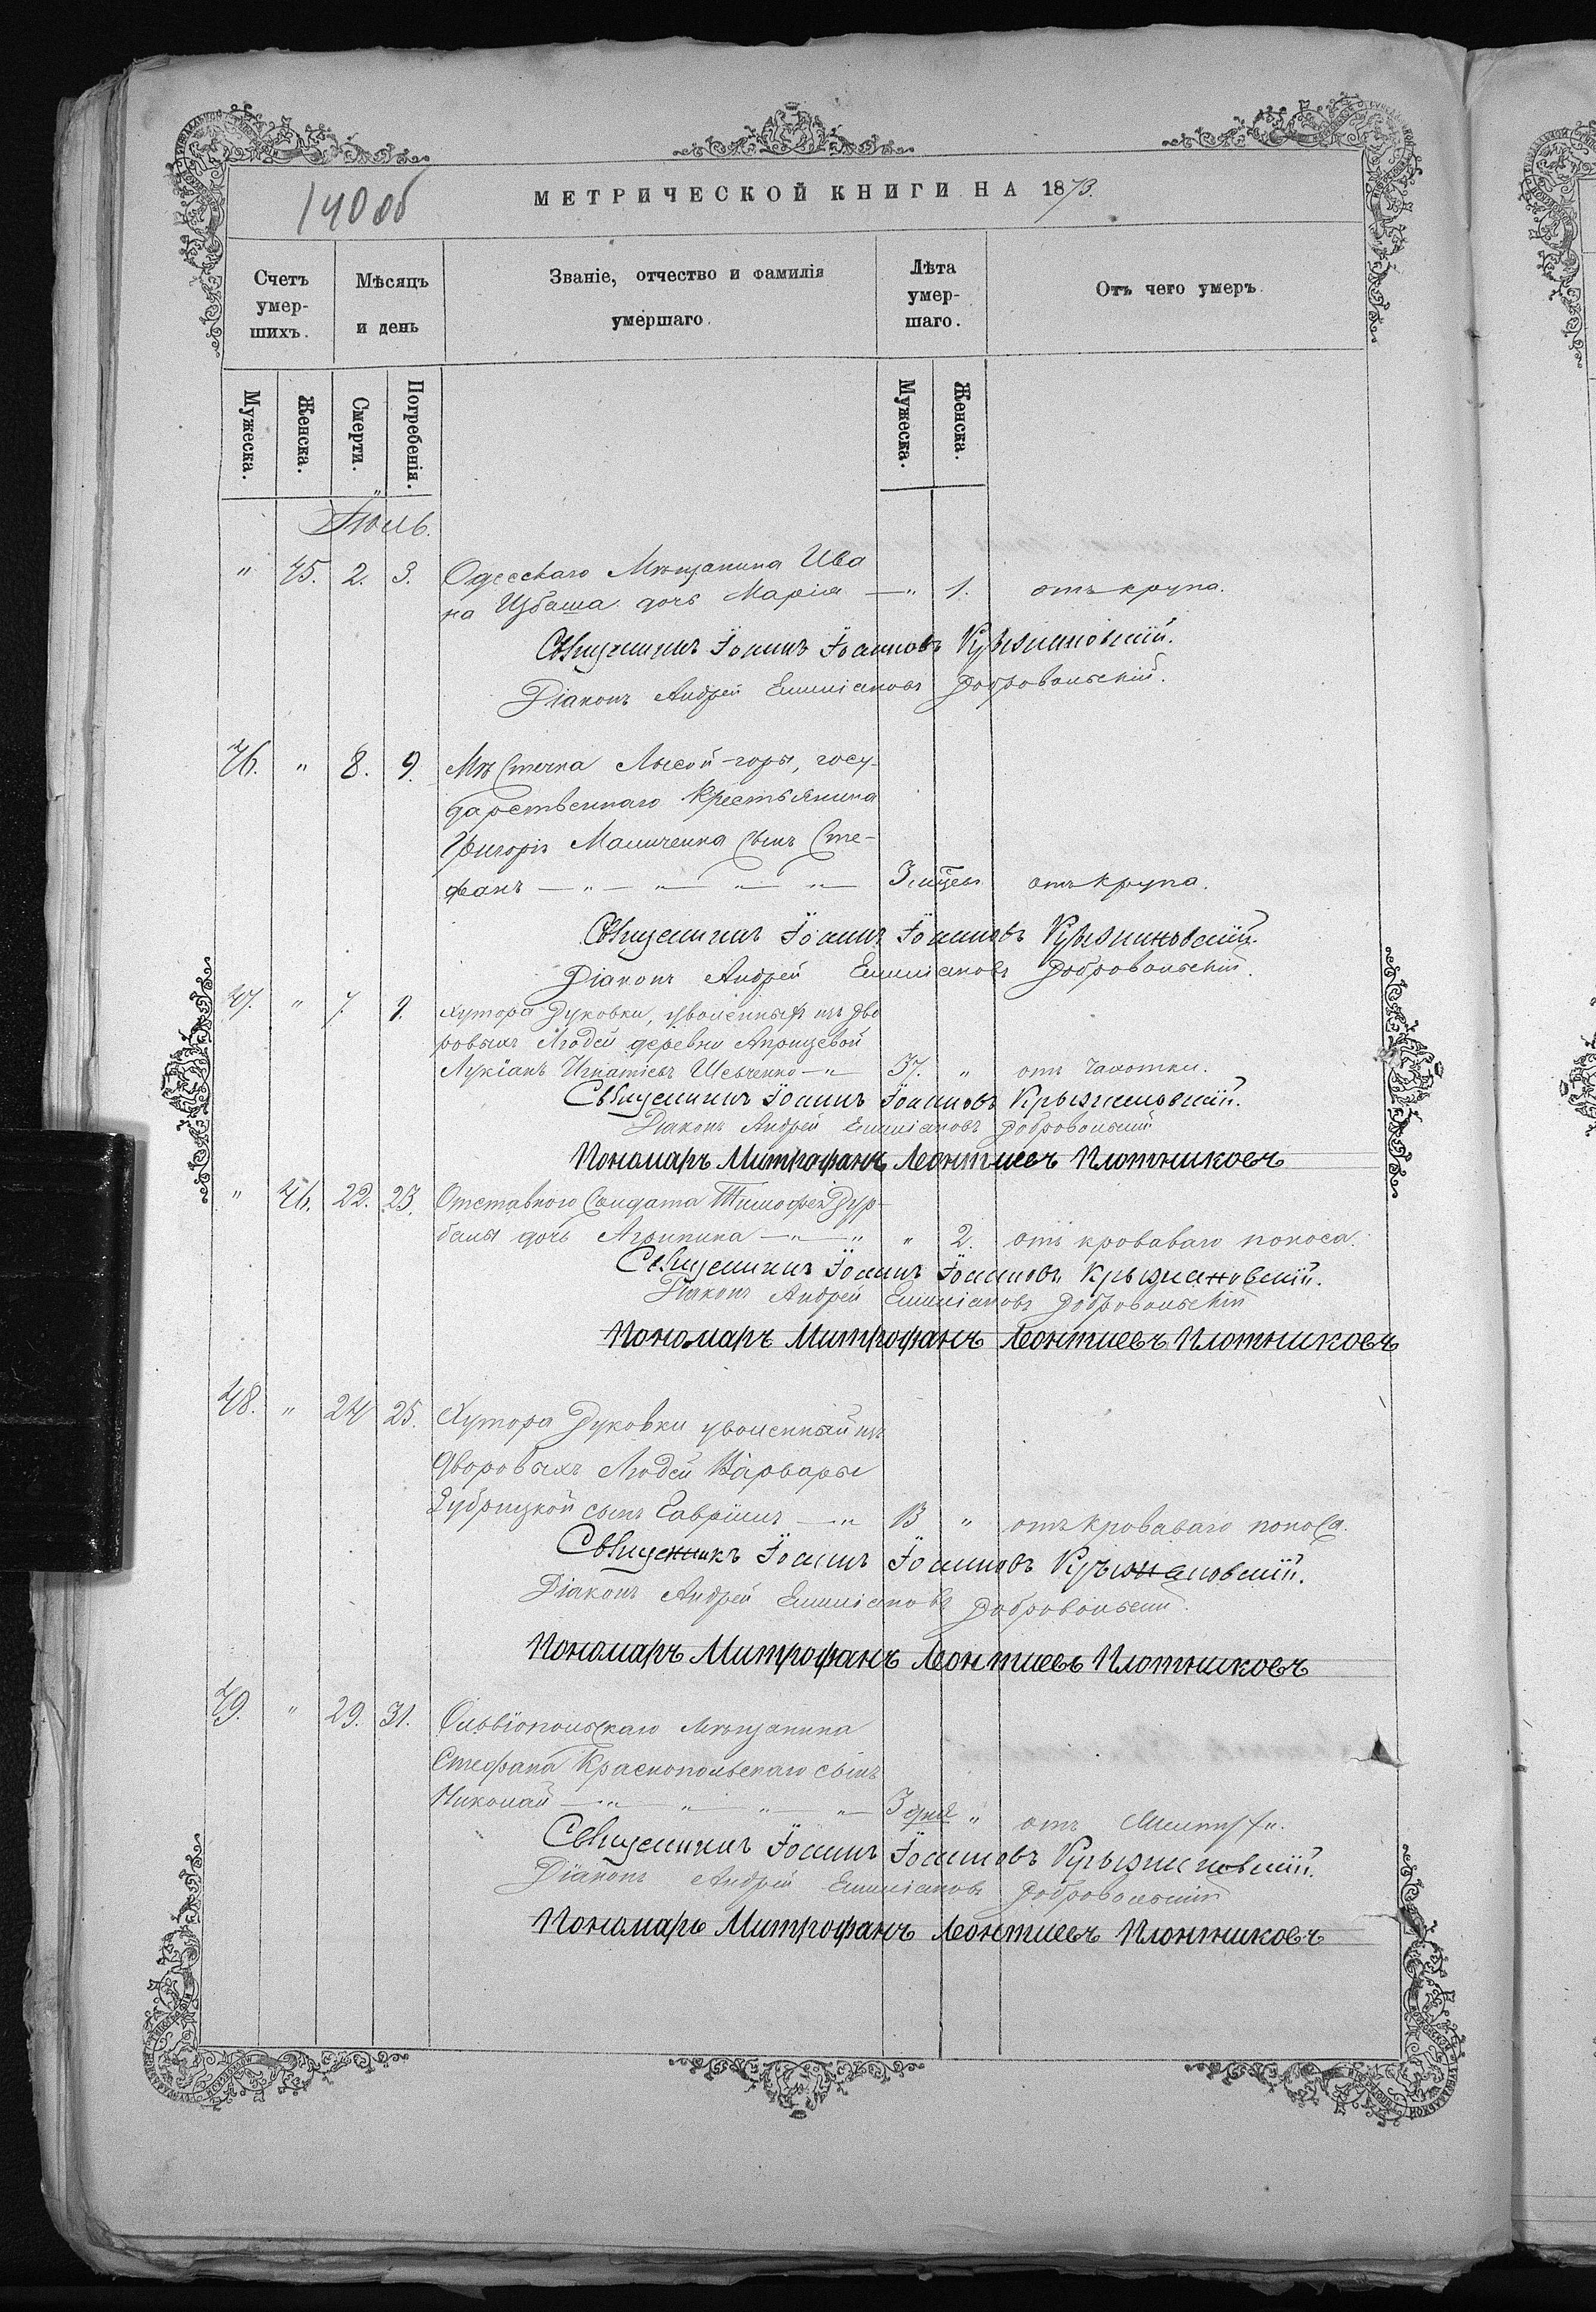 140 об
МЕТРИЧЕСКОЙ КНИГИ НА 1873.
Счетъ умер-шихъ.
Мѣсяцъ и день
Званіе, отчество и фамилія умершаго.
Лѣта умер-шаго.
Отъ чего умеръ.
Мужеска.
Женска.
Смерти.
Погребенія.
Мужеска.
Женска.
Іюль.
" 45. 2. 3. Одесскаго Мѣщанина Ива
на Избаша дочь Марія — " 1. отъ крупа.
Священникъ Іоаннъ Іоанновъ Крыжановскій.
Діаконъ Андрей Емиліановъ Добровольскій.
46. " 8. 9. Мѣстечка Лысой-горы, госу-
дарственнаго Крестьянина
Григорія Маличенка сынъ Сте-
фанъ — " — " — " — " — 3 мцев отъ крупа.
Священникъ Іоаннъ Іоанновъ Крыжановскій.
Діаконъ Андрей Емиліановъ Добровольскій.
47. " 7. 9. Хутора Дуковки, уволенный изъ дво
ровыхъ Людей деревни
Лукіанъ Игнатіевъ Шевченко — " — 37. " отъ чахотки.
Священникъ Іоаннъ Іоанновъ Крыжановскій.
Діаконъ Андрей Емиліановъ Добровольскій
Пономаръ Митрофанъ Леонтиевъ Плотниковъ
" 46. 22. 23. Отставнаго Солдата Тимофея Дур-
балы дочь Агрипина — " — " " 2. отъ кроваваго поноса.
Священникъ Іоаннъ Іоанновъ Крыжановскій.
Діаконъ Андрей Емиліановъ Добровольскій
Пономаръ Митрофанъ Леонтиевъ Плотниковъ
48. " 24 25. Хутора Дуковки уволенный изъ
дворовыхъ Людей Варвары
Зубрицкой сынъ Гавріилъ — " 13 " отъ кроваваго поноса.
Священникъ Іоаннъ Іоанновъ Крыжановскій.
Діаконъ Андрей Емиліановъ Добровольскій.
Пономаръ Митрофанъ Леонтиевъ Плотниковъ
49. " 29. 31. Ольвіопольскаго Мѣщанина
Стефана Краснопольскаго сынъ
Николай — " — " — " — " — 3 дня " отъ
Священникъ Іоаннъ Іоанновъ Крыжановскій.
Діаконъ Андрей Емиліановъ Добровольскій
Пономаръ Митрофанъ Леонтиевъ Плотниковъ